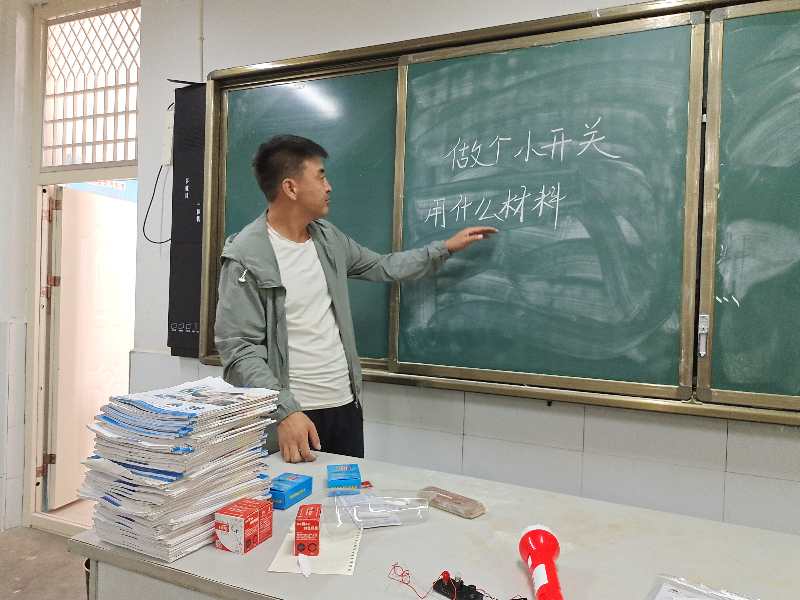 做个小开关
用什么材料